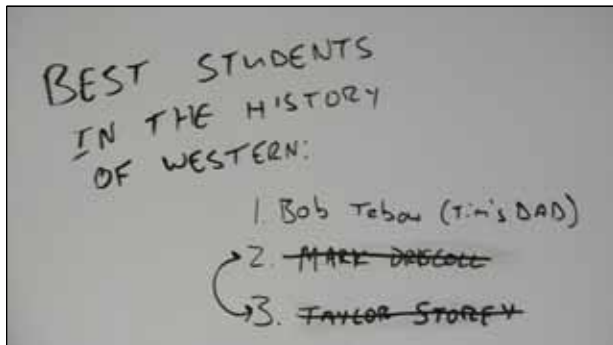 BEST STUDENTS
IN THE HISTORY
OF WESTERN:
1. Bob Tebow (Tim's DAD)
2. MARK DRISCOLL
3. TAYLOR STOREY